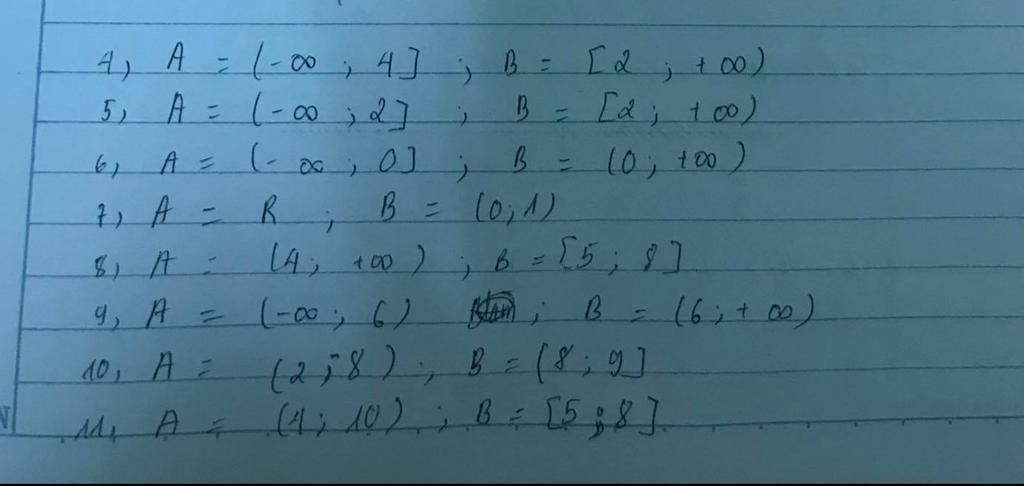 4, A = (-∞ ; 4] ; B = [2 ; +∞)
5, A = (-∞ ; 2] ; B = [2 ; +∞)
6, A = (-∞ ; 0] ; B = (0 ; +∞)
7, A = R ; B = (0 ; 1)
8, A = (4 ; +∞) ; B = [5 ; 8]
9, A = (-∞ ; 6) ; B = (6 ; +∞)
10, A = (2 ; 8) ; B = (8 ; 9]
11, A = (4 ; 10) ; B = [5 ; 8]